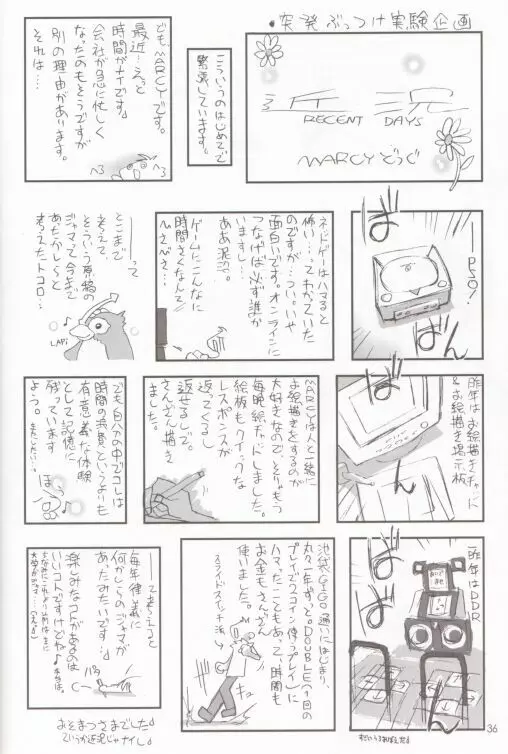 ・突発ぶっつけ実験企画
近況
RECENT DAYS
MARCYどうぐ
こういうのはじめてで
緊張しています。
どもMARCYです。
最近…えっと
時間がナイです。
会社が急に忙しく
なったのもそうですが
別の理由があります。
それは…
──PSO!
ばん
ネットゲーはハマると
怖い…ってわかっていた
のですが…つい。いや
面白いです。オンラインに
つなげば必ず誰か
いますし…
ああ泥沼。
ゲームにこんなに
時間さくなんて
──って
とこまで
考えて
そういう原稿の
ジャマで今まで
あたかしらと
考えたトコロ…
LAPi
昨年はお絵描きチャットに
&お絵描き掲示板
ばん
MARCYは人と一緒に
お絵描きをするのが
大好きなので、そりゃもう
毎晩絵チャットしました。
絵板もクイックな
レスポンスが
返ってくるし
返せるしで。
さんざん描き
ました。
でも自ハァの中でコレは
時間の浪費というよりも
有意義な体験
として記憶に
残っています
よぅ。
またしたい…。
一昨年はDDR
ばん
池袋GIGO通いにはじまり、
丸々1年ずっと。DOUBLE(1回の
プレイで2コイン使うプレイ)に
ハマったこともあって時間も
お金もさんざん
使いました。
スライドスイッチ派
──って考えると
毎年律義に
何かしらのジャマが
あったみたいです…
楽しみなコトがあるのは
いいコトですけどね♪
おそまつさまでした♪
ていうか近況じゃナイし♪
36